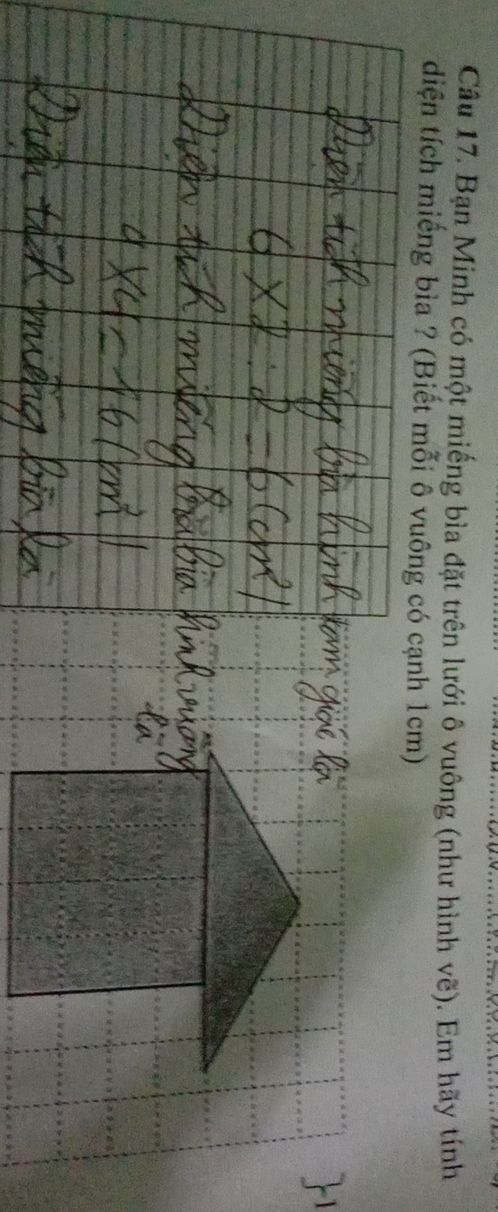 Câu 17. Bạn Minh có một miếng bìa đặt trên lưới ô vuông (như hình vẽ). Em hãy tính
diện tích miếng bìa ? (Biết mỗi ô vuông có cạnh 1cm)
Diện tích miếng bìa hình tam giác là
6 x 2 : 2 = 6 (cm²)
Diện tích miếng bìa hình vuông
là
4 x 4 = 16 (cm²)
Diện tích miếng bìa là
}1